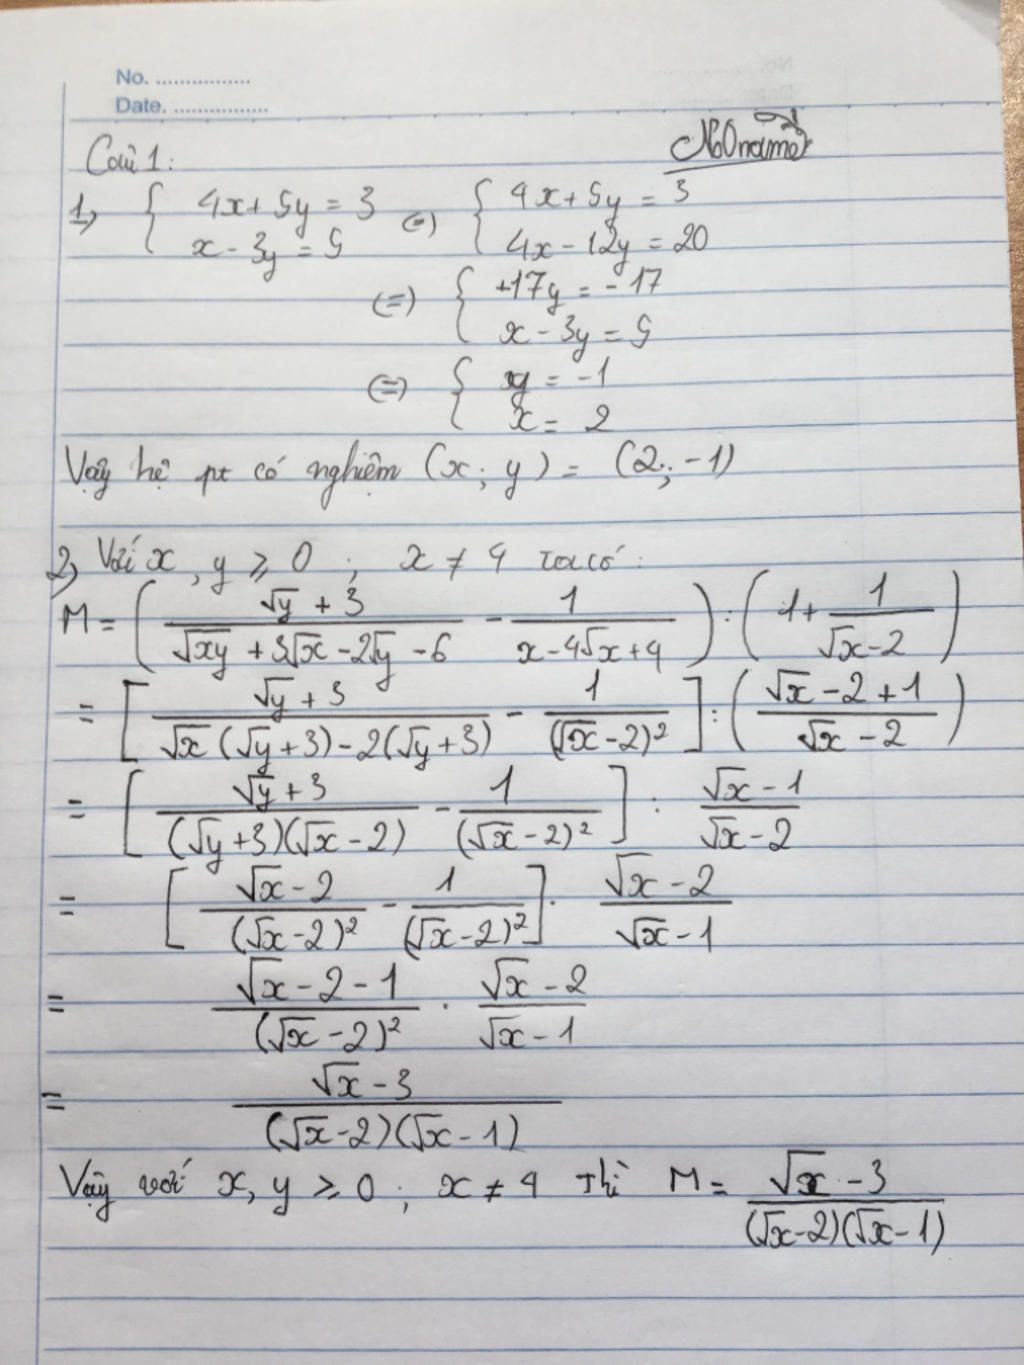 No. ................
Date. ................
NoOname
Câu 1:
1, { 4x + 5y = 3 (=) { 4x + 5y = 3
x - 3y = 5 4x - 12y = 20
(=) { +17y = -17
x - 3y = 5
(=) { y = -1
x = 2
Vậy hệ pt có nghiệm (x; y) = (2; -1)
2, Với x, y ⩾ 0 ; x ≠ 4 ta có :
M = ( (√y + 3)/(√xy + 3√x - 2√y - 6) - 1/(x - 4√x + 4) ) : ( 1 + 1/(√x - 2) )
= [ (√y + 3)/(√x (√y + 3) - 2(√y + 3)) - 1/(√x - 2)² ] : ( (√x - 2 + 1)/(√x - 2) )
= [ (√y + 3)/((√y + 3)(√x - 2)) - 1/(√x - 2)² ] : (√x - 1)/(√x - 2)
= [ (√x - 2)/(√x - 2)² - 1/(√x - 2)² ] . (√x - 2)/(√x - 1)
= (√x - 2 - 1)/(√x - 2)² . (√x - 2)/(√x - 1)
= (√x - 3)/((√x - 2)(√x - 1))
Vậy với x, y ⩾ 0 ; x ≠ 4 thì M = (√x - 3)/((√x - 2)(√x - 1))